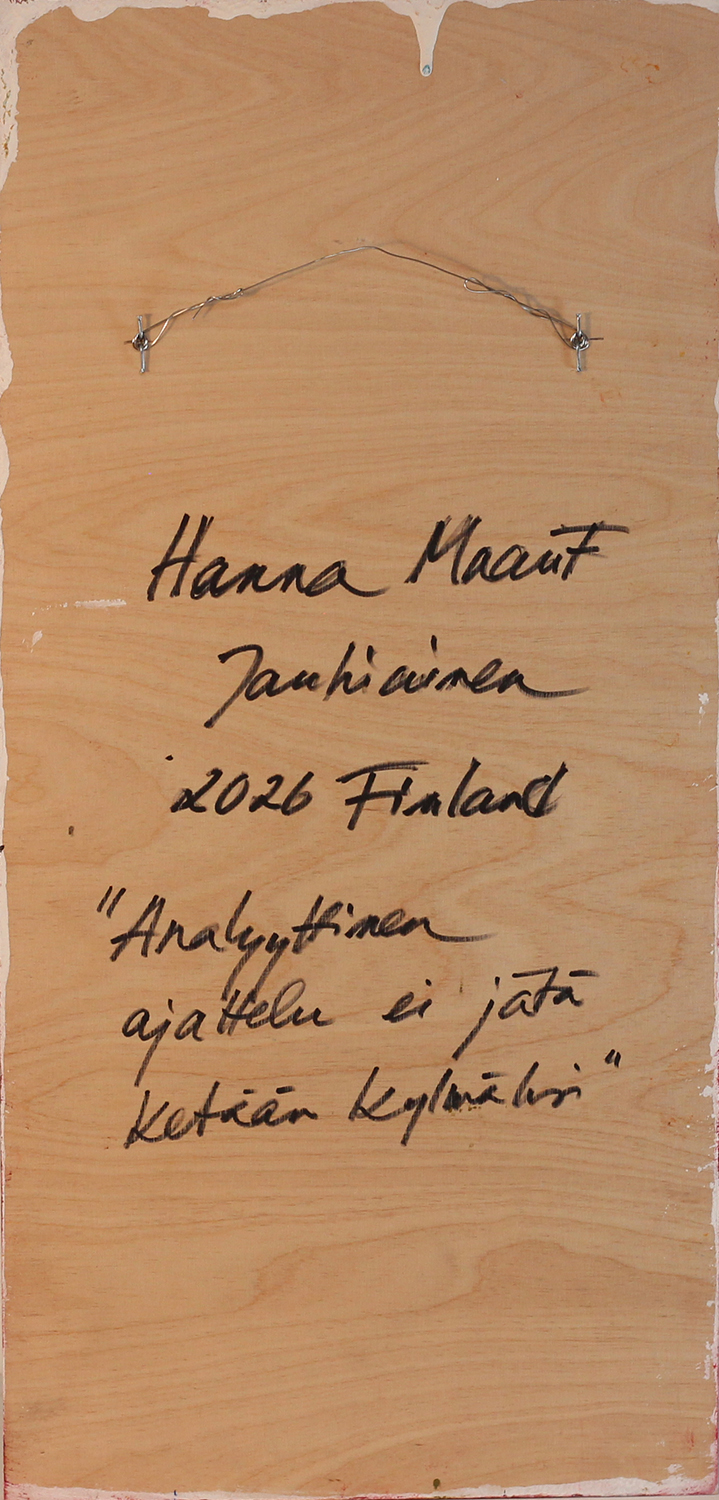 Hanna Maarit
Jauhiainen
2026 Finland
"Analyyttinen
ajattelu ei jätä
ketään kylmäksi"